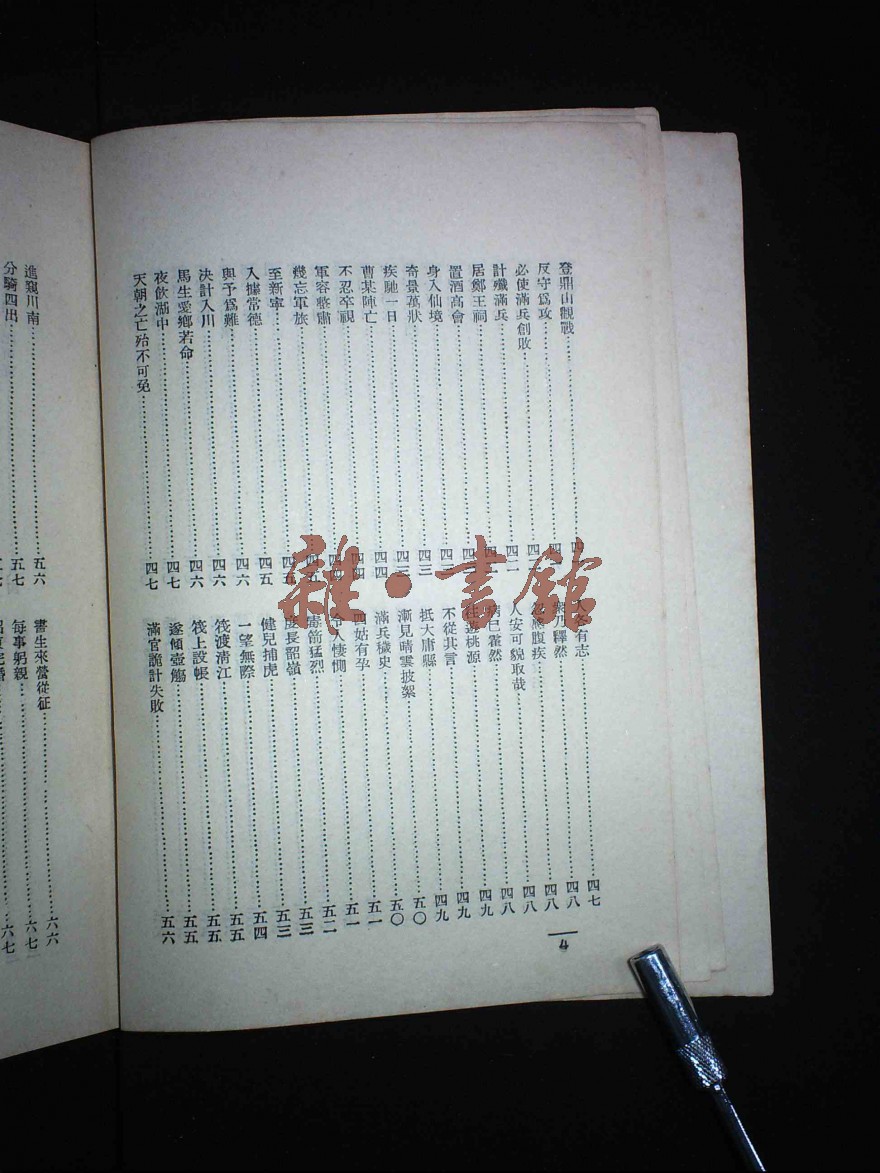 登鼎山觀戰
反守爲攻
必使滿兵創敗
計殲滿兵……四二
居鄭王祠
置酒高會
身入仙境
奇景萬狀……四三
疾馳一日
曹某陣亡……四四
不忍卒視
軍容整肅
幾忘軍族
至新寧
入據常德……四五
與予爲難……四六
決計入川……四六
馬生愛鄉若命……四六
夜飲湖中……四七
天朝之亡殆不可免……四七
人各有志……四七
衆乃釋然……四八
腹疾……四八
人安可貌取哉……四八
病已霍然……四八
往遊桃源……四九
不從其言……四九
抵大庸縣……四九
漸見晴雲披絮……五〇
滿兵穢史……五〇
四姑有孕……五一
令人悽惻……五一
毒箭猛烈……五二
長韶嶺……五三
健兒捕虎……五三
一望無際……五四
筏渡清江……五五
筏上設帳……五五
遂傾壺觴……五五
滿官詭計失敗……五六
4
進窺川南……五六
分騎四出……五七
書生來營從征……六六
每事躬親……六七
六七
雜·書館